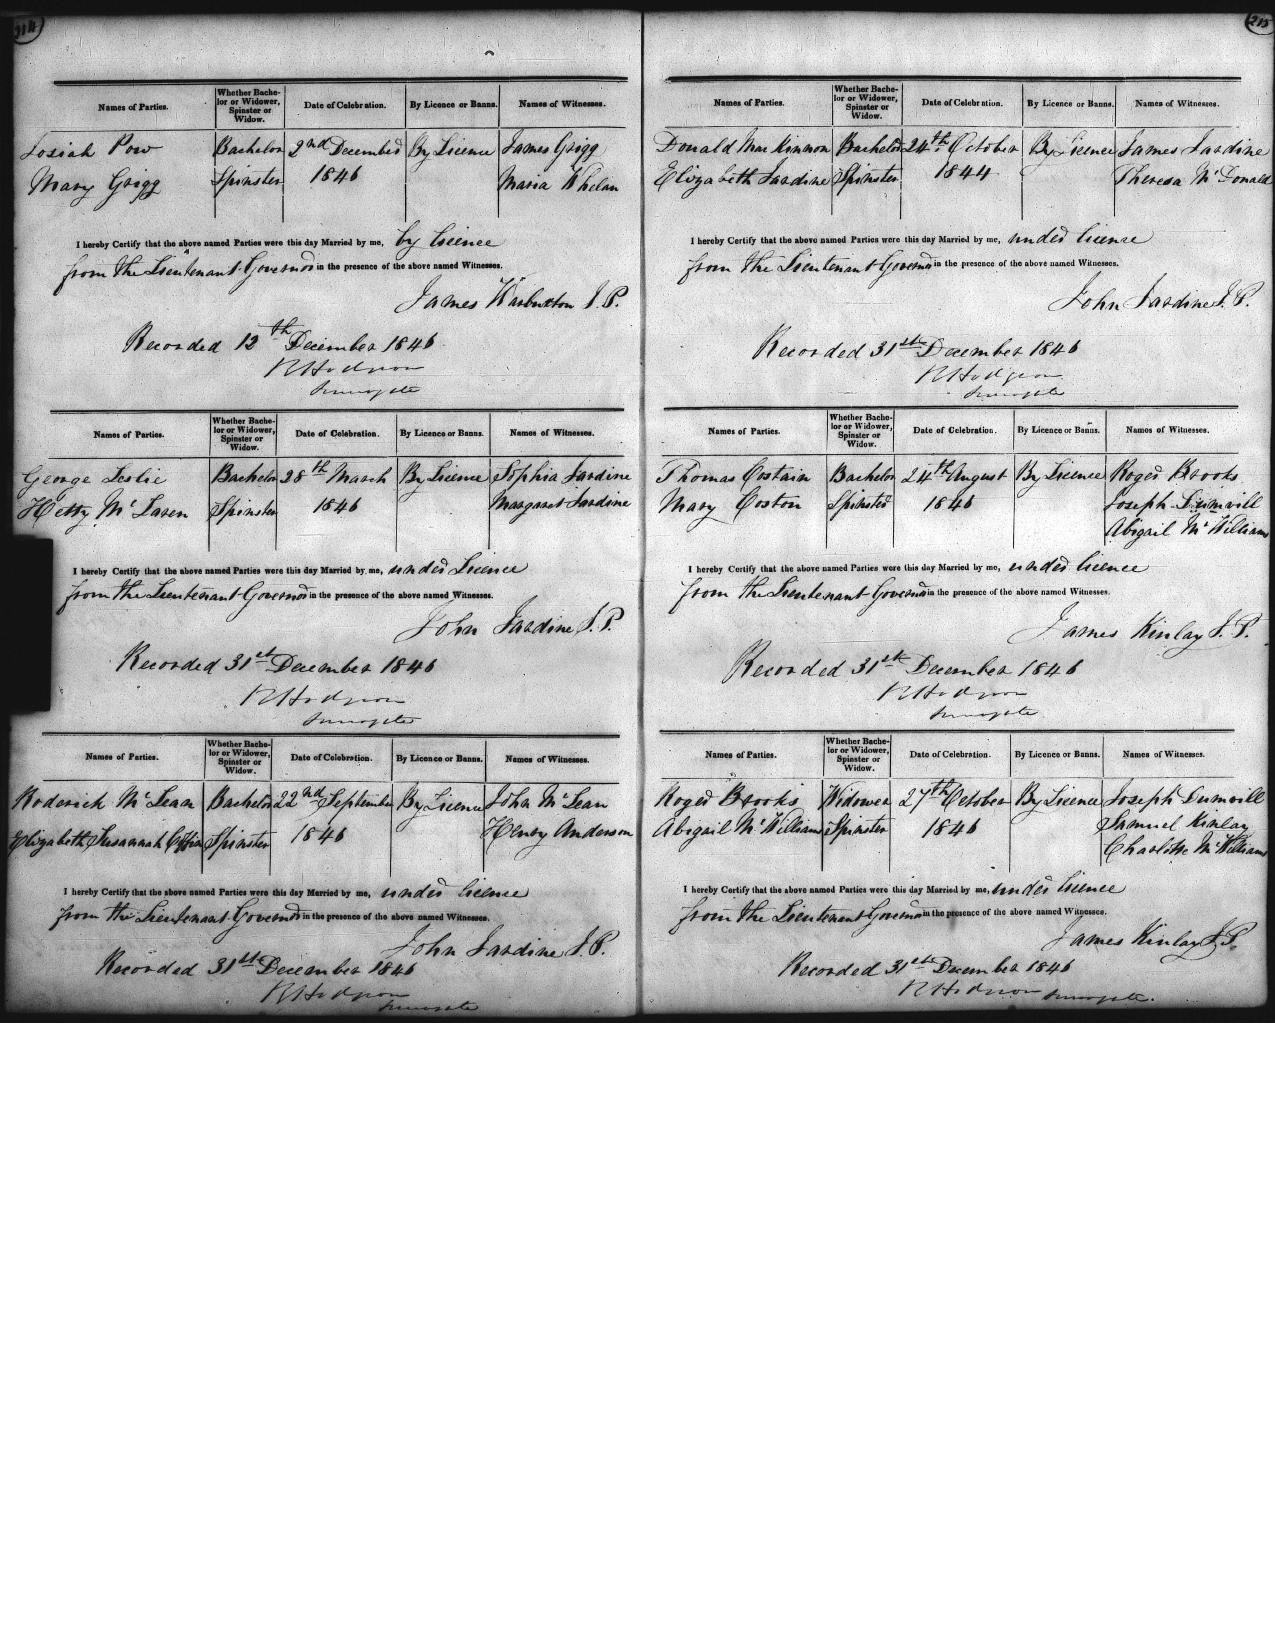 214
Names of Parties. Whether Bachelor or Widower, Spinster or Widow. Date of Celebration. By Licence or Banns. Names of Witnesses.
Josiah Pow Bachelor 2nd December By Licence James Grigg
Mary Grigg Spinster 1846 Maria Whelan
I hereby Certify that the above named Parties were this day Married by me, by licence
from the Lieutenant Governor in the presence of the above named Witnesses.
James Warburton J.P.
Recorded 12th December 1846
R Hodgson
Surrogate
Names of Parties. Whether Bachelor or Widower, Spinster or Widow. Date of Celebration. By Licence or Banns. Names of Witnesses.
George Leslie Bachelor 28th March By Licence Sophia Jardine
Hetty McLaren Spinster 1846 Margaret Jardine
I hereby Certify that the above named Parties were this day Married by me, under Licence
from the Lieutenant Governor in the presence of the above named Witnesses.
John Jardine J.P.
Recorded 31st December 1846
R Hodgson
Surrogate
Names of Parties. Whether Bachelor or Widower, Spinster or Widow. Date of Celebration. By Licence or Banns. Names of Witnesses.
Roderick McLean Bachelor 22nd September By Licence John McLean
Elizabeth Susannah Coffin Spinster 1846 Henry Anderson
I hereby Certify that the above named Parties were this day Married by me, under licence
from the Lieutenant Governor in the presence of the above named Witnesses.
John Jardine J.P.
Recorded 31st December 1846
R Hodgson
Surrogate
215
Names of Parties. Whether Bachelor or Widower, Spinster or Widow. Date of Celebration. By Licence or Banns. Names of Witnesses.
Donald MacKinnon Bachelor 24th October By Licence James Jardine
Elizabeth Jardine Spinster 1844 Theresa McDonald
I hereby Certify that the above named Parties were this day Married by me, under licence
from the Lieutenant Governor in the presence of the above named Witnesses.
John Jardine J.P.
Recorded 31st December 1846
R Hodgson
Surrogate
Names of Parties. Whether Bachelor or Widower, Spinster or Widow. Date of Celebration. By Licence or Banns. Names of Witnesses.
Thomas Costain Bachelor 24th August By Licence Roger Brooks
Mary Coston Spinster 1846 Joseph Dumvill
Abigail McWilliams
I hereby Certify that the above named Parties were this day Married by me, under licence
from the Lieutenant Governor in the presence of the above named Witnesses.
James Kinlay J.P.
Recorded 31st December 1846
R Hodgson
Surrogate
Names of Parties. Whether Bachelor or Widower, Spinster or Widow. Date of Celebration. By Licence or Banns. Names of Witnesses.
Roger Brooks Widower 27th October By Licence Joseph Dumvill
Abigail McWilliams Spinster 1846 Samuel Kinlay
Charlotte McWilliams
I hereby Certify that the above named Parties were this day Married by me, under licence
from the Lieutenant Governor in the presence of the above named Witnesses.
James Kinlay J.P.
Recorded 31st December 1846
R Hodgson Surrogate.